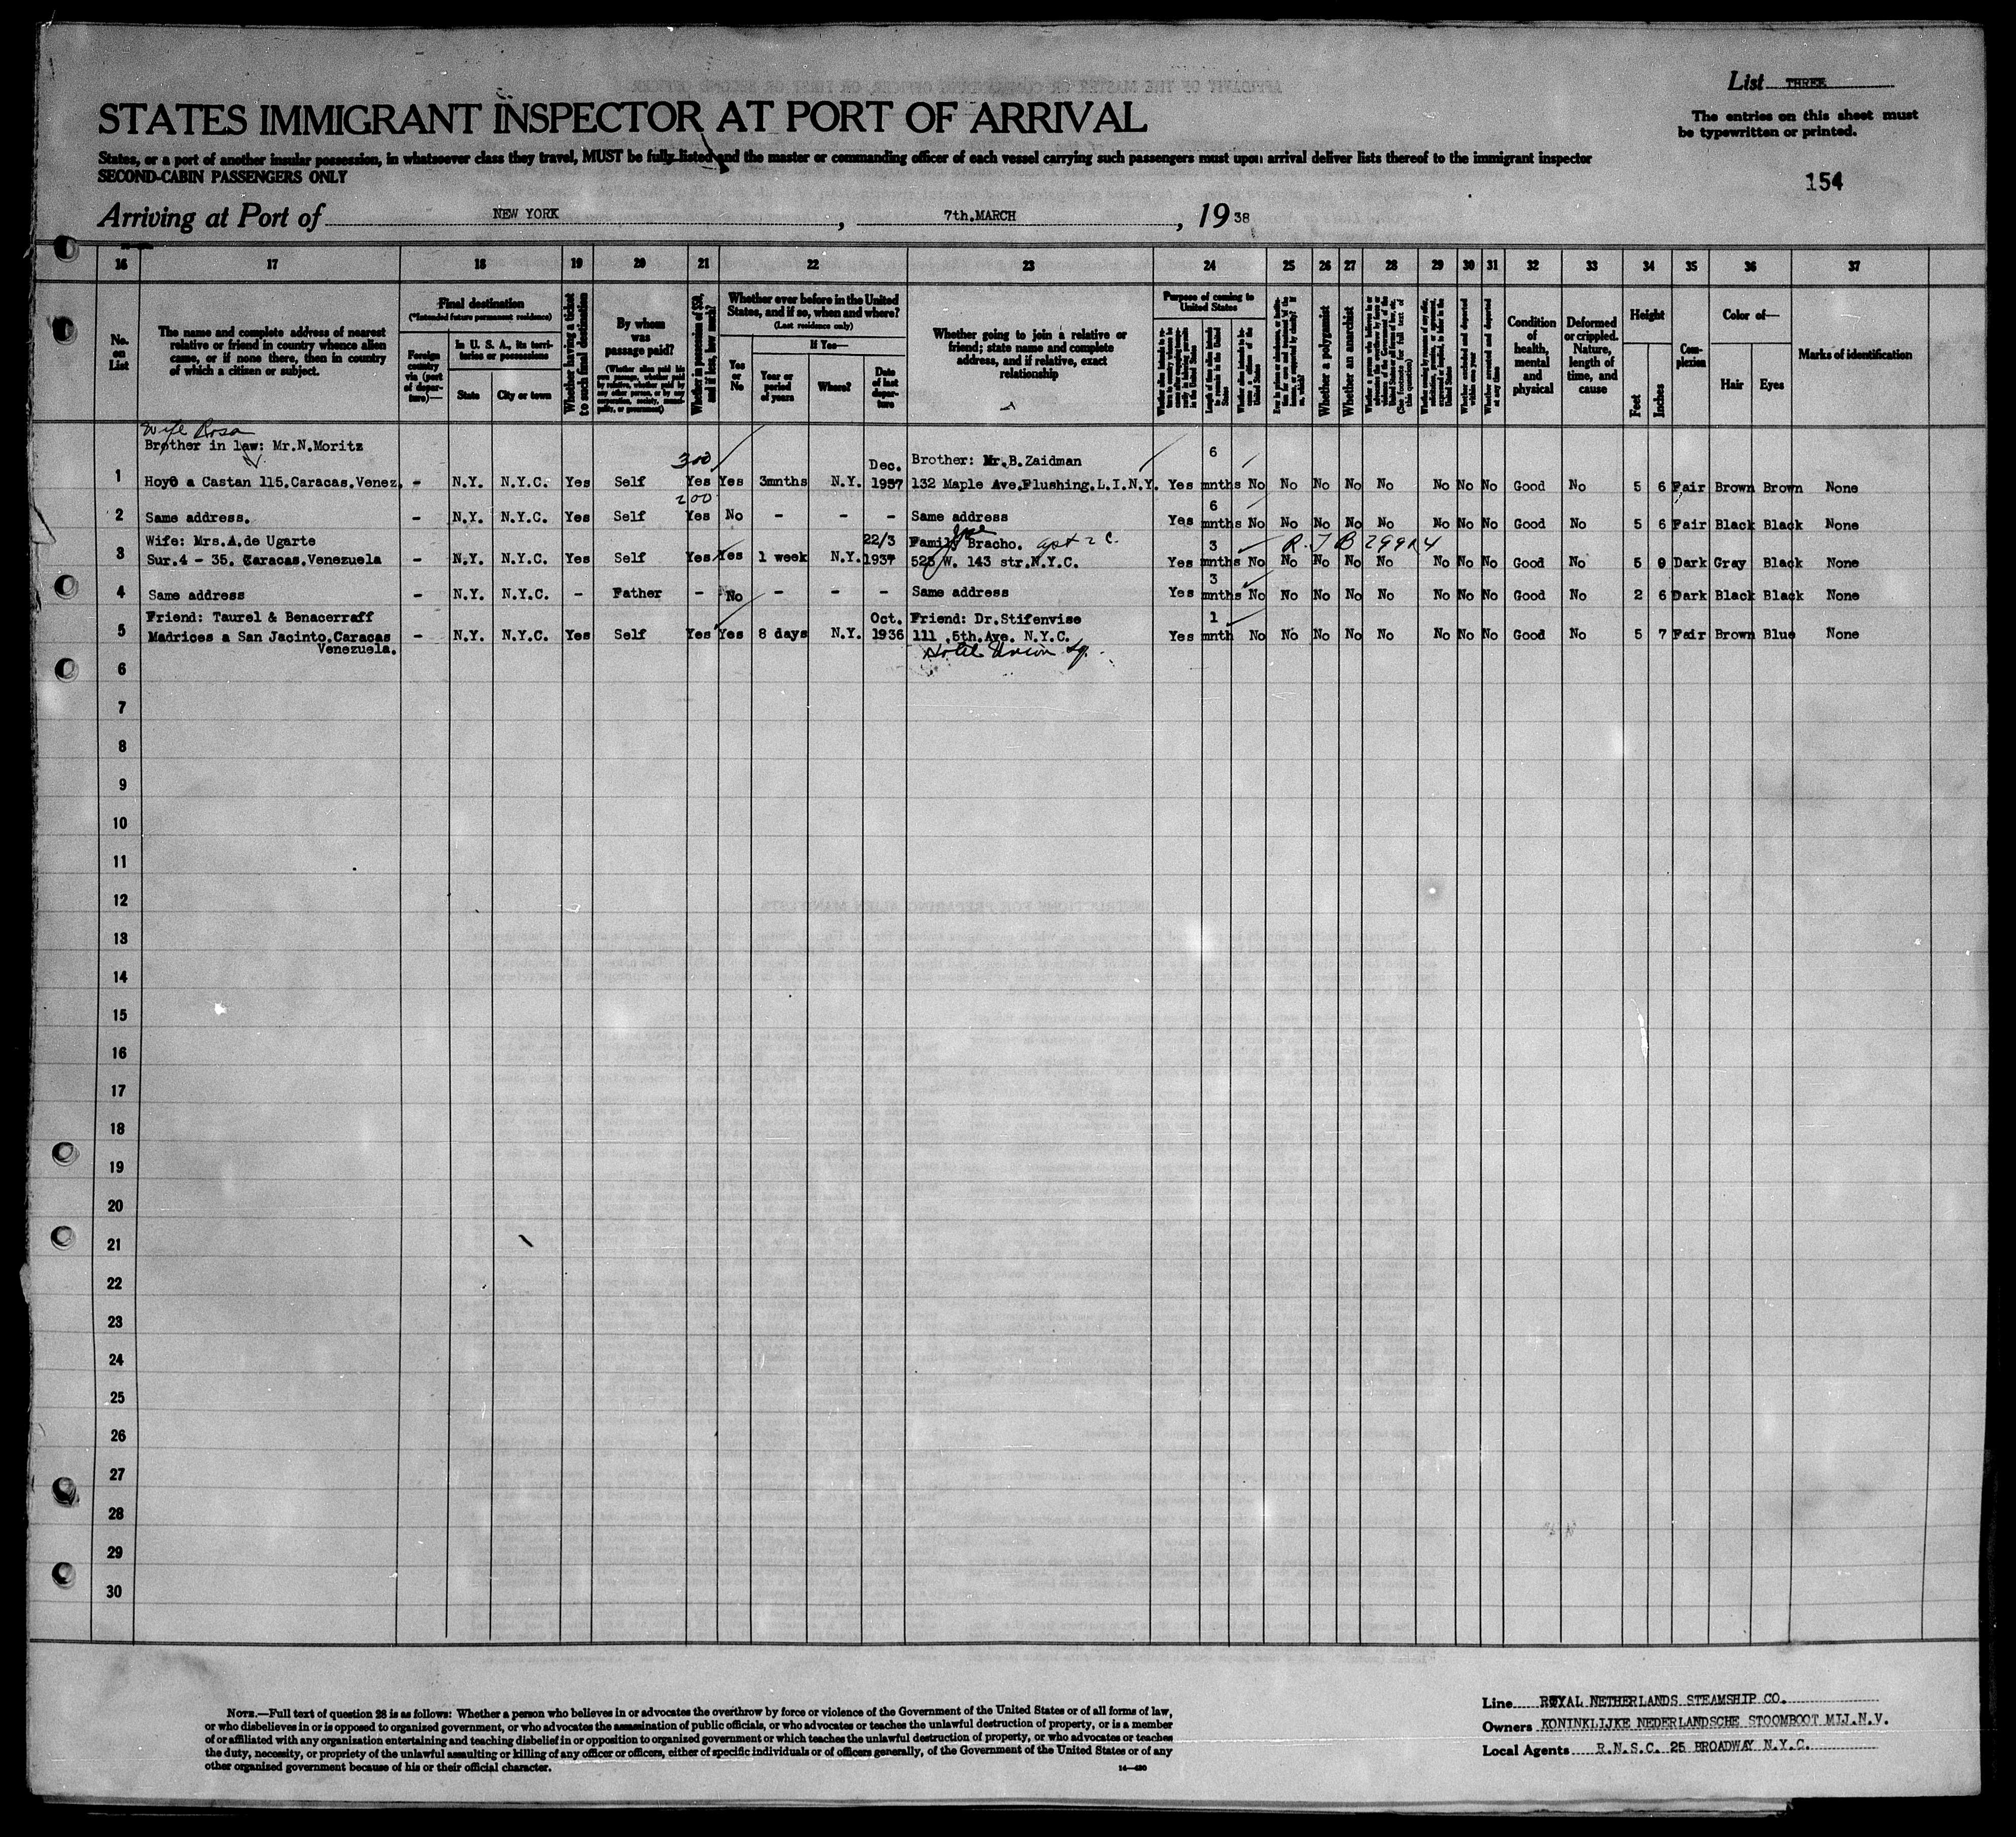 List THREE
STATES IMMIGRANT INSPECTOR AT PORT OF ARRIVAL
The entries on this sheet must
be typewritten or printed.
States, or a port of another insular possession, in whatsoever class they travel, MUST be fully listed and the master or commanding officer of each vessel carrying such passengers must upon arrival deliver lists thereof to the immigrant inspector
SECOND-CABIN PASSENGERS ONLY
154
Arriving at Port of NEW YORK, 7th.MARCH, 1938
16 17 18 19 20 21 22 23 24 25 26 27 28 29 30 31 32 33 34 35 36 37
No. on List
The name and complete address of nearest
relative or friend in country whence alien
came, or if none there, then in country
of which a citizen or subject.
Final destination
(*Intended future permanent residence)
Foreign country via (port of departure)—
In U. S. A., its territories or possessions
State
City or town
Whether having a ticket to such final destination
By whom was passage paid?
(Whether alien paid his own passage, whether paid by relative, whether paid by any other person, or by any corporation, society, municipality, or government)
Whether in possession of $50, and if less, how much?
Whether ever before in the United
States, and if so, when and where?
(Last residence only)
Yes or No
If Yes—
Year or period of years
Where?
Date of last departure
Whether going to join a relative or
friend; state name and complete
address, and if relative, exact
relationship
Purpose of coming to
United States
Length of time alien intends to remain in the United States
Whether alien intends to become a citizen of the United States
Whether a polygamist
Whether an anarchist
Whether arrested and deported at any time
Condition of health, mental and physical
Deformed or crippled. Nature, length of time, and cause
Height
Feet
Inches
Complexion
Color of—
Hair
Eyes
Marks of identification
Wife Rosa
Brother in law: Mr.N.Moritz
300
Dec.
Brother: Mr.B.Zaidman
6
1 Hoyo a Castan 115.Caracas.Venez. - N.Y. N.Y.C. Yes Self Yes Yes 3mnths N.Y. 1937 132 Maple Ave.Flushing.L.I.N.Y. Yes mnths No No No No No No No No Good No 5 6 Fair Brown Brown None
200
6
2 Same address. - N.Y. N.Y.C. Yes Self Yes No - - - Same address Yes mnths No No No No No No No No Good No 5 6 Fair Black Black None
Wife: Mrs.A.de Ugarte
22/3
Family Bracho. apt 2 C.
3
R. J B 29924
3 Sur.4 - 35. Caracas.Venezuela - N.Y. N.Y.C. Yes Self Yes Yes 1 week N.Y. 1937 525 W. 143 str.N.Y.C. Yes mnths No No No No No No No No Good No 5 0 Dark Gray Black None
3
4 Same address - N.Y. N.Y.C. - Father - No - - - Same address Yes mnths No No No No No No No No Good No 2 6 Dark Black Black None
Friend: Taurel & Benacerraff
Oct.
Friend: Dr.Stifenvise
1
5 Madrices a San Jacinto.Caracas - N.Y. N.Y.C. Yes Self Yes Yes 8 days N.Y. 1936 111 .5th.Ave. N.Y.C. Yes mnth No No No No No No No No Good No 5 7 Fair Brown Blue None
Venezuela.
Hotel Union Sq.
6
7
8
9
10
11
12
13
14
15
16
17
18
19
20
21
22
23
24
25
26
27
28
29
30
NOTE.—Full text of question 28 is as follows: Whether a person who believes in or advocates the overthrow by force or violence of the Government of the United States or of all forms of law,
or who disbelieves in or is opposed to organized government, or who advocates the assassination of public officials, or who advocates or teaches the unlawful destruction of property, or is a member
of or affiliated with any organization entertaining and teaching disbelief in or opposition to organized government or which teaches the unlawful destruction of property, or who advocates or teaches
the duty, necessity, or propriety of the unlawful assaulting or killing of any officer or officers, either of specific individuals or of officers generally, of the Government of the United States or of any
other organized government because of his or their official character.
14—430
Line ROYAL NETHERLANDS STEAMSHIP CO.
Owners KONINKLIJKE NEDERLANDSCHE STOOMBOOT MIJ.N.V.
Local Agents R.N.S.C. 25 BROADWAY N.Y.C.